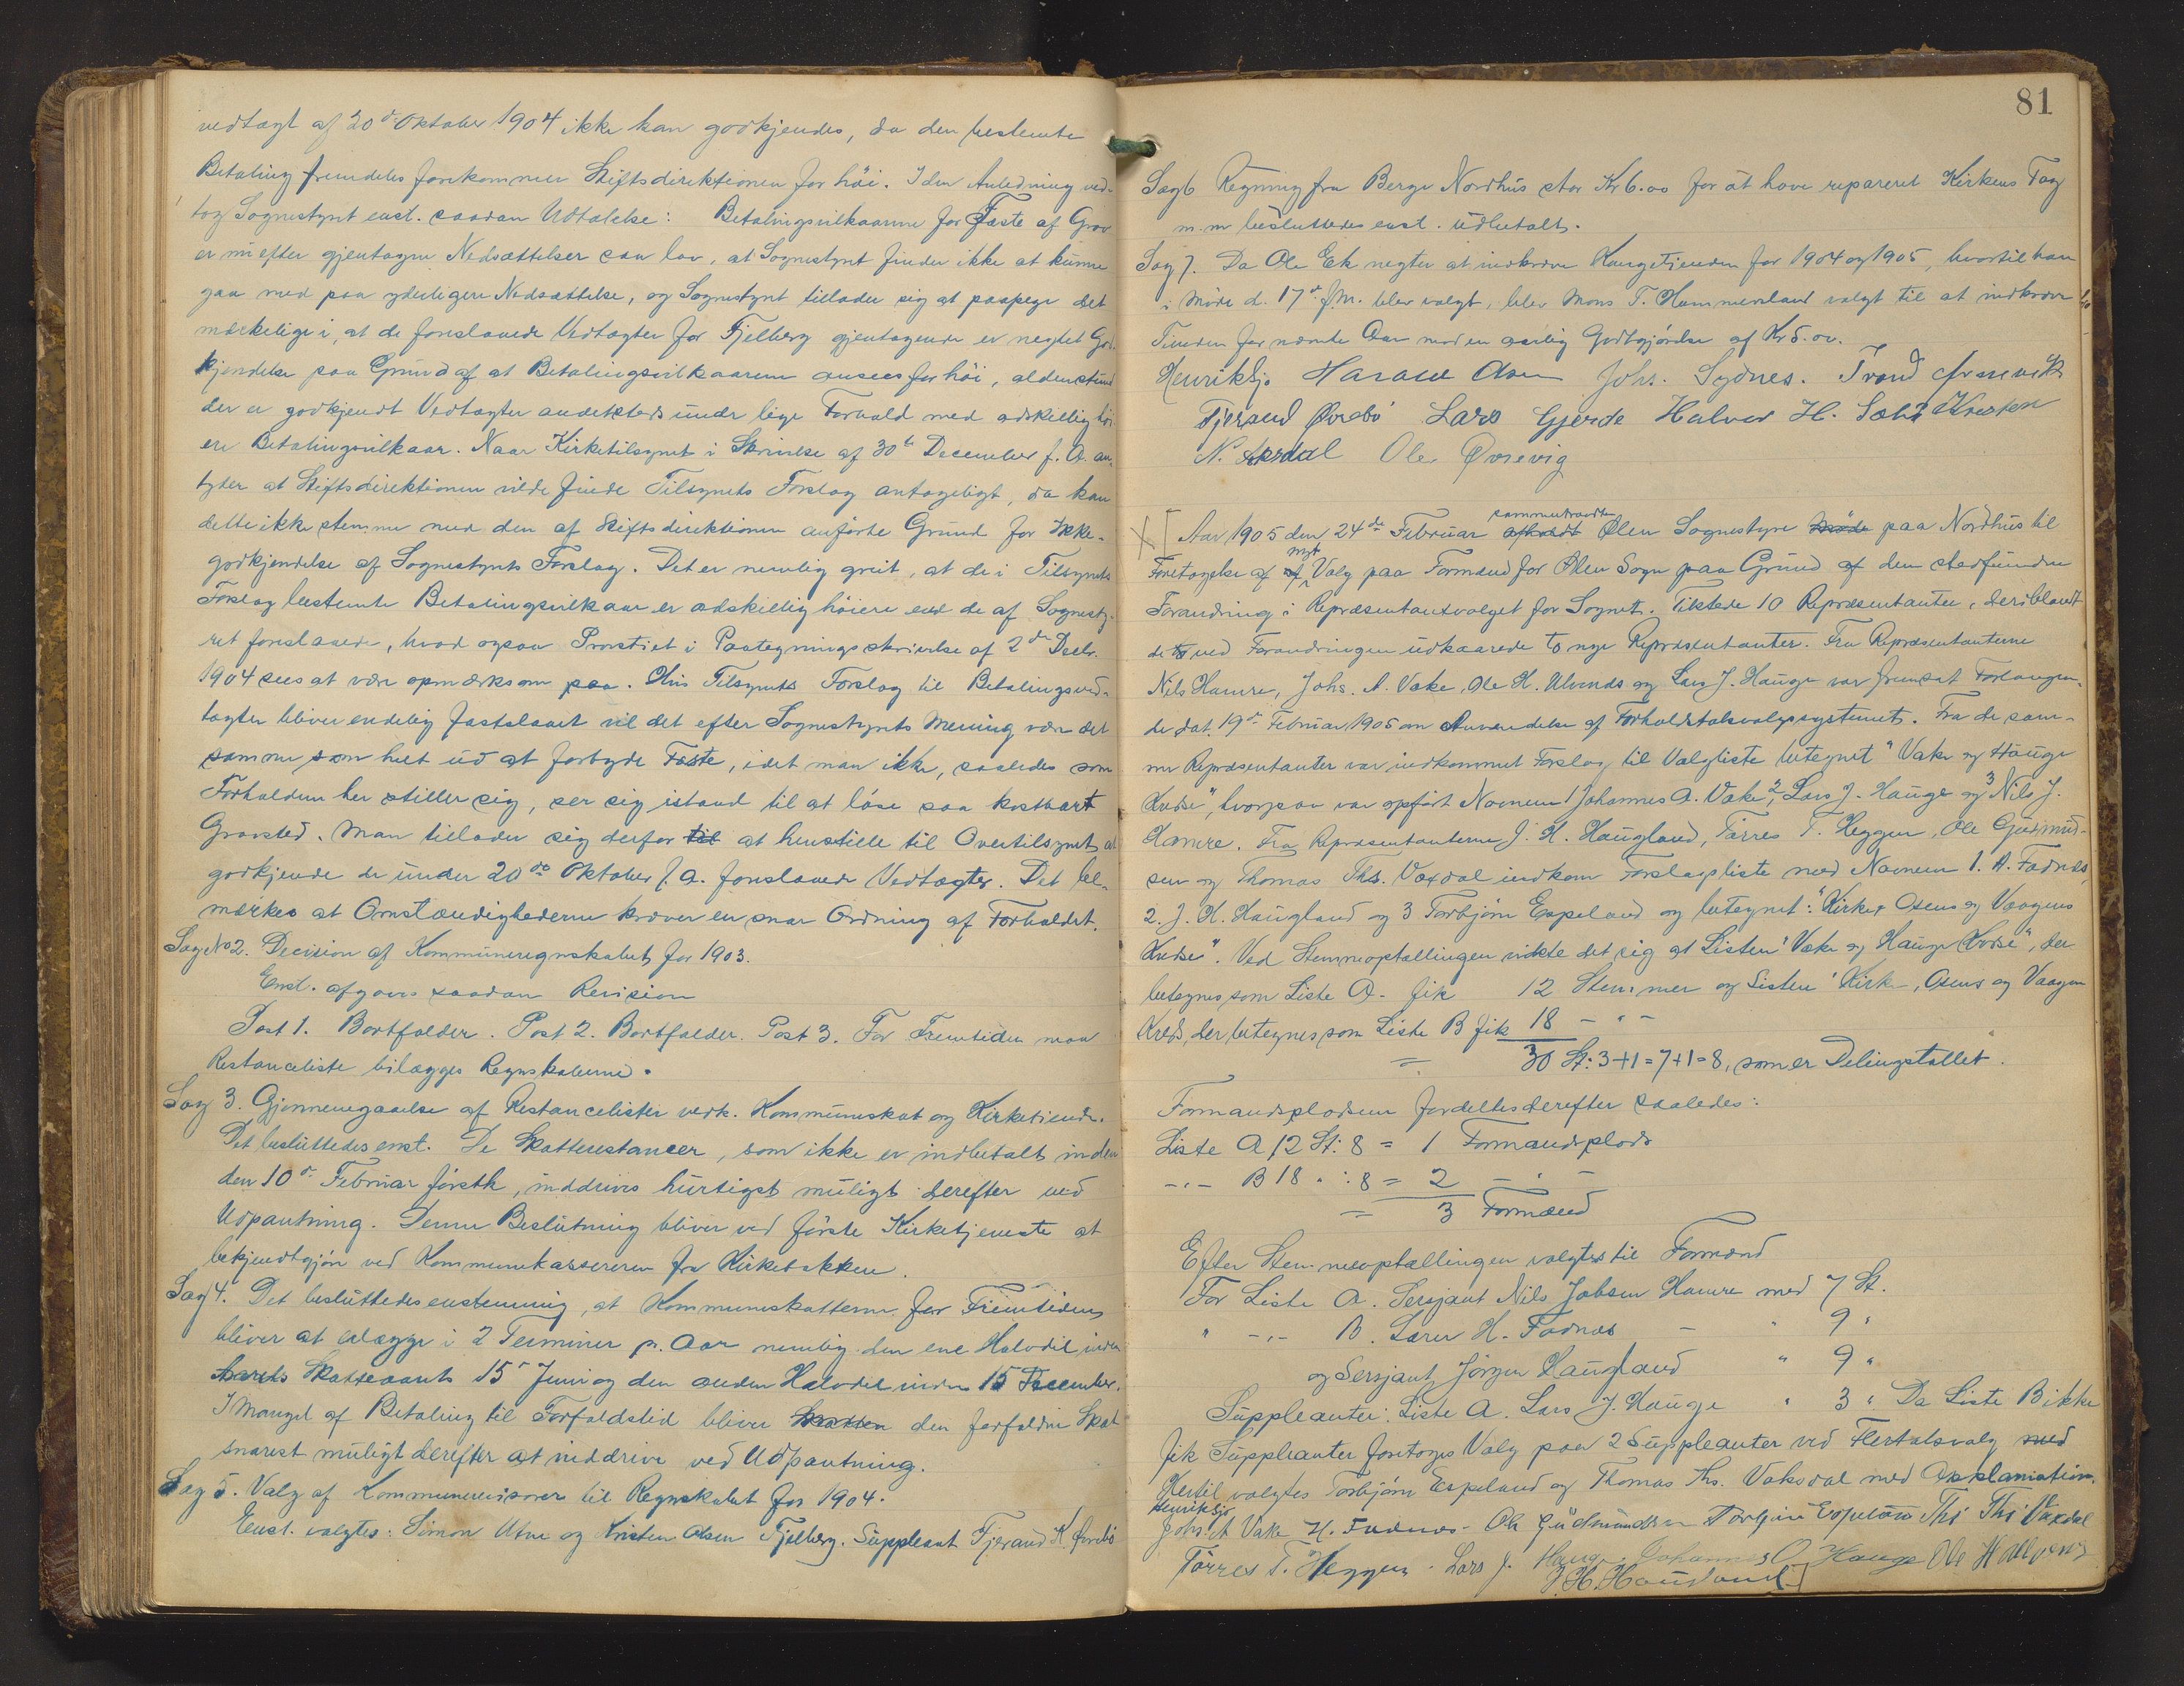 vedtagt af 20de Oktober 1904 ikke kan godkjendes, da den bestemte
Betaling fremdeles forekommer Stiftsdirektionen for höi. I den Anledning ved-
tog Sognestyret enst. saadan Udtalelse: Betalingsvilkaarene for Fæste af Grav
er nu efter gjentagne Nedsættelser saa lav, at Sognestyret finder ikke at kunne
gaa med paa yderligere Nedsættelse, og Sognestyret tillader sig at paapege det
mærkelige i, at de foreslaaede Vedtægter for Fjelberg gjentagende er negtet God-
kjendelse paa Grund af at Betalingsvilkaarene ansees for höi, aldenstund
der er godkjendt Vedtægter andetsteds under lige Forhold med adskillig höi-
ere Betalingsvilkaar. Naar Kirketilsynet i Skrivelse af 30te December f. A. an-
tyder at Stiftsdirektionen vilde finde Tilsynets Forslag antageligt, da kan
dette ikke stemme med den af Stiftsdirektionen anförte Grund for Ikke-
godkjendelse af Sognestyrets Forslag. Det er nemlig greit, at de i Tilsynets
Forslag bestemte Betalingsvilkaar er adskillig höiere end de af Sognesty-
ret foreslaaede, hvad ogsaa Provstiet i Paategningsskrivelse af 2den Decbr.
1904 sees at være opmærksom paa. Hvis Tilsynets Forslag til Betalingsved-
tægter bliver endelig fastslaaet vil det efter Sognestyrets Mening være det
samme som helt ud at forbyde Fæste, idet man ikke, saaledes som
Forholdene her stiller sig, ser sig istand til at löse saa kostbart
Gravsted. Man tillader sig derfor til at henstille til Overtilsynet at
godkjende de under 20de Oktober f. A. foreslaaede Vedtægter. Det be-
mærkes at Omstændighederne kræver en snar Ordning af Forholdet.
Sag No 2. Decision af Kommuneregnskabet for 1903.
Enst. afgaves saadan Revision
Post 1. Bortfalder. Post 2. Bortfalder. Post 3. For Fremtiden maa
Restanceliste bilægges Regnskaberne.
Sag 3. Gjennemgaaelse af Restancelister vedk. Kommuneskat og Kirketiende.
Det besluttedes enst. De Skatterestancer, som ikke er indbetalt inden
den 10de Februar förstk, inddrives hurtigst muligt derefter ved
Udpantning. Denne Beslutning bliver ved förste Kirketjeneste at
bekjendtgjöre ved Kommunekassereren fra Kirkebakken.
Sag 4. Det besluttedes enstemmig, at Kommuneskatterne for Fremtiden
bliver at erlægge i 2 Terminer pr. Aar nemlig den ene Halvdel inden
hvert Skatteaars 15de Juni og den anden Halvdel inden 15 December.
I Mangel af Betaling til Forfaldstid bliver Skatten den forfaldne Skat
snarest muligt derefter at inddrive ved Udpantning.
Sag 5. Valg af Kommunerevisorer til Regnskabet for 1904.
Enst. valgtes: Simon Ulne og Kristen Olsen Fjelberg. Suppleant Fjerand K. Örebö
81
Sag 6 Regning fra Berge Nordhus stor Kr 6.00 for at have repareret Kirkens Tag
m. m besluttedes enst. udbetalt.
Sag 7. Da Ole Ek negter at indkræve Kongetienden for 1904 og 1905, hvortil han
i Möde d. 17de f.M. blev valgt, blev Mons T. Hammersland valgt til at indkræve
Tienden for nævnte Aar mod en aarlig Godtgjörelse af Kr 5.00.
Henriksjö Johs. Sydnes. Trond
Fjerand Ørebö Lars Gjerde Halvor H. Sæbö
N. Aksdal Ole Øvrevig
Aar 1905 den 24de Februar afholdt sammentraadte Ølen Sognestyre Möde paa Nordhus til
Foretagelse af nyt Valg paa Formænd for Ølen Sogn paa Grund af den stedfundne
Forandring i Repræsentantvalget for Sognet. Tilstede 10 Repræsentanter, deriblandt
de to ved Forandringen udkaarede to nye Repræsentanter. Fra Repræsentanterne
Nils Hamre, Johs. A. Vake, Ole H. Ulvnds og Lars J. Hauge var fremsat Forlangen-
de dat. 19de Februar 1905 om Anvendelse af Forholdstalsvalgsystemet. Fra de sam-
me Repræsentanter var indkommet Forslag til Valgliste betegnet "Vake og Hauge
Kredse", hvorpaa var opfört Navnene 1 Johannes A. Vake, 2, Lars J. Hauge og 3 Nils J.
Hamre. Fra Repræsentanterne J. H. Haugland, Törres T. Heggen, Ole Gudmund-
sen og Thomas Ths. Vaxdal indkom Forslagsliste med Navnene 1. H. Fadnæs,
2. J. H. Haugland og 3 Torbjörn Espeland og betegnet: "Kirke, Osens og Vaagens
Kredse". Ved Stemmeoptællingen viste det sig at Listen "Vake og Hauge Kredse", der
betegnes som Liste A. fik 12 Stemmer og Listen "Kirke, Osens og Vaagen
Kreds, der betegnes som Liste B fik 18 - " -
= 30 St: 3+1=7+1=8, som er Delingstallet.
Formandspladsene fordeltes derefter saaledes:
Liste A 12 St: 8 = 1 Formandsplads
-"- B 18 " : 8 = 2 - " -
= 3 Formænd
Efter Stemmeoptællingen valgtes til Formænd
For Liste A. Sersjant Nils Jobsen Hamre med 7 St.
" -"- B. Lærer H. Fadnæs - " 9 "
og Sersjant Jörgen Haugland " 9 "
Suppleanter: Liste A. Lars J. Hauge " 3 " Da Liste B ikke
fik Suppleanter foretoges Valg paa 2 Suppleanter ved Flertalsvalg med
Hertil valgtes Torbjörn Espeland og Thomas Ths. Vaksdal med Akklamation.
Henriksjö
Johs. A Vake H. Fadnæs - Ole Gudmundsen Torbjörn Espeland Ths Ths Vaxdal
Törres T. Heggen. Lars J. Hauge Johannes O Hauge Ole H
J. H. Haugland